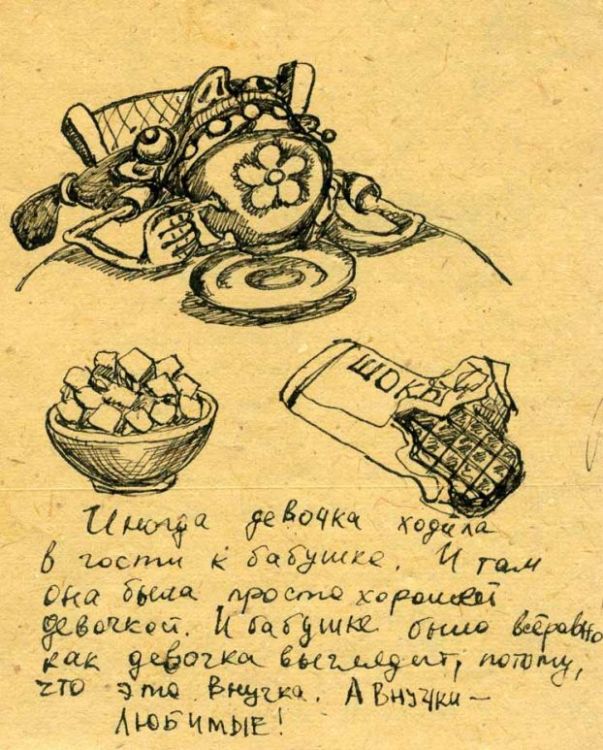 ШОКА
Иногда девочка ходила
в гости к бабушке. И там
она была просто хорошей
девочкой. И бабушке было всёравно
как девочка выглядит, потому,
что это внучка. А внучки —
ЛЮБИМЫЕ!